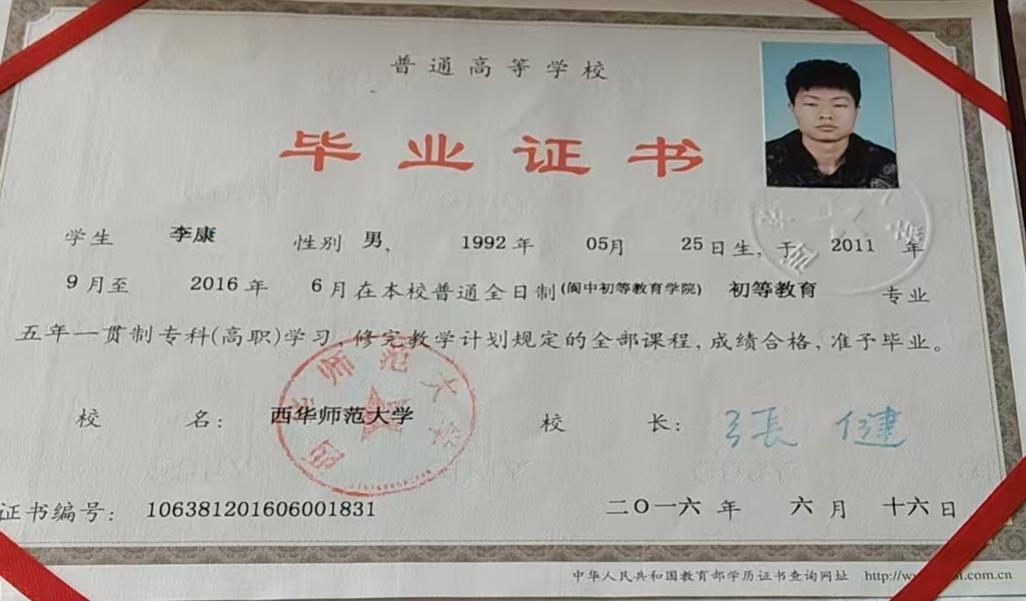 普通高等学校
毕业证书
学生 李康 性别 男、 1992年 05月 25日生,于 2011 年
9月至 2016年 6月在本校普通全日制(阆中初等教育学院) 初等教育 专业
五年一贯制专科(高职)学习,修完教学计划规定的全部课程,成绩合格,准予毕业。
校 名: 西华师范大学 校 长: 張健
西华师范大学
证书编号: 106381201606001831 二〇一六年 六月 十六日
中华人民共和国教育部学历证书查询网址 http://w